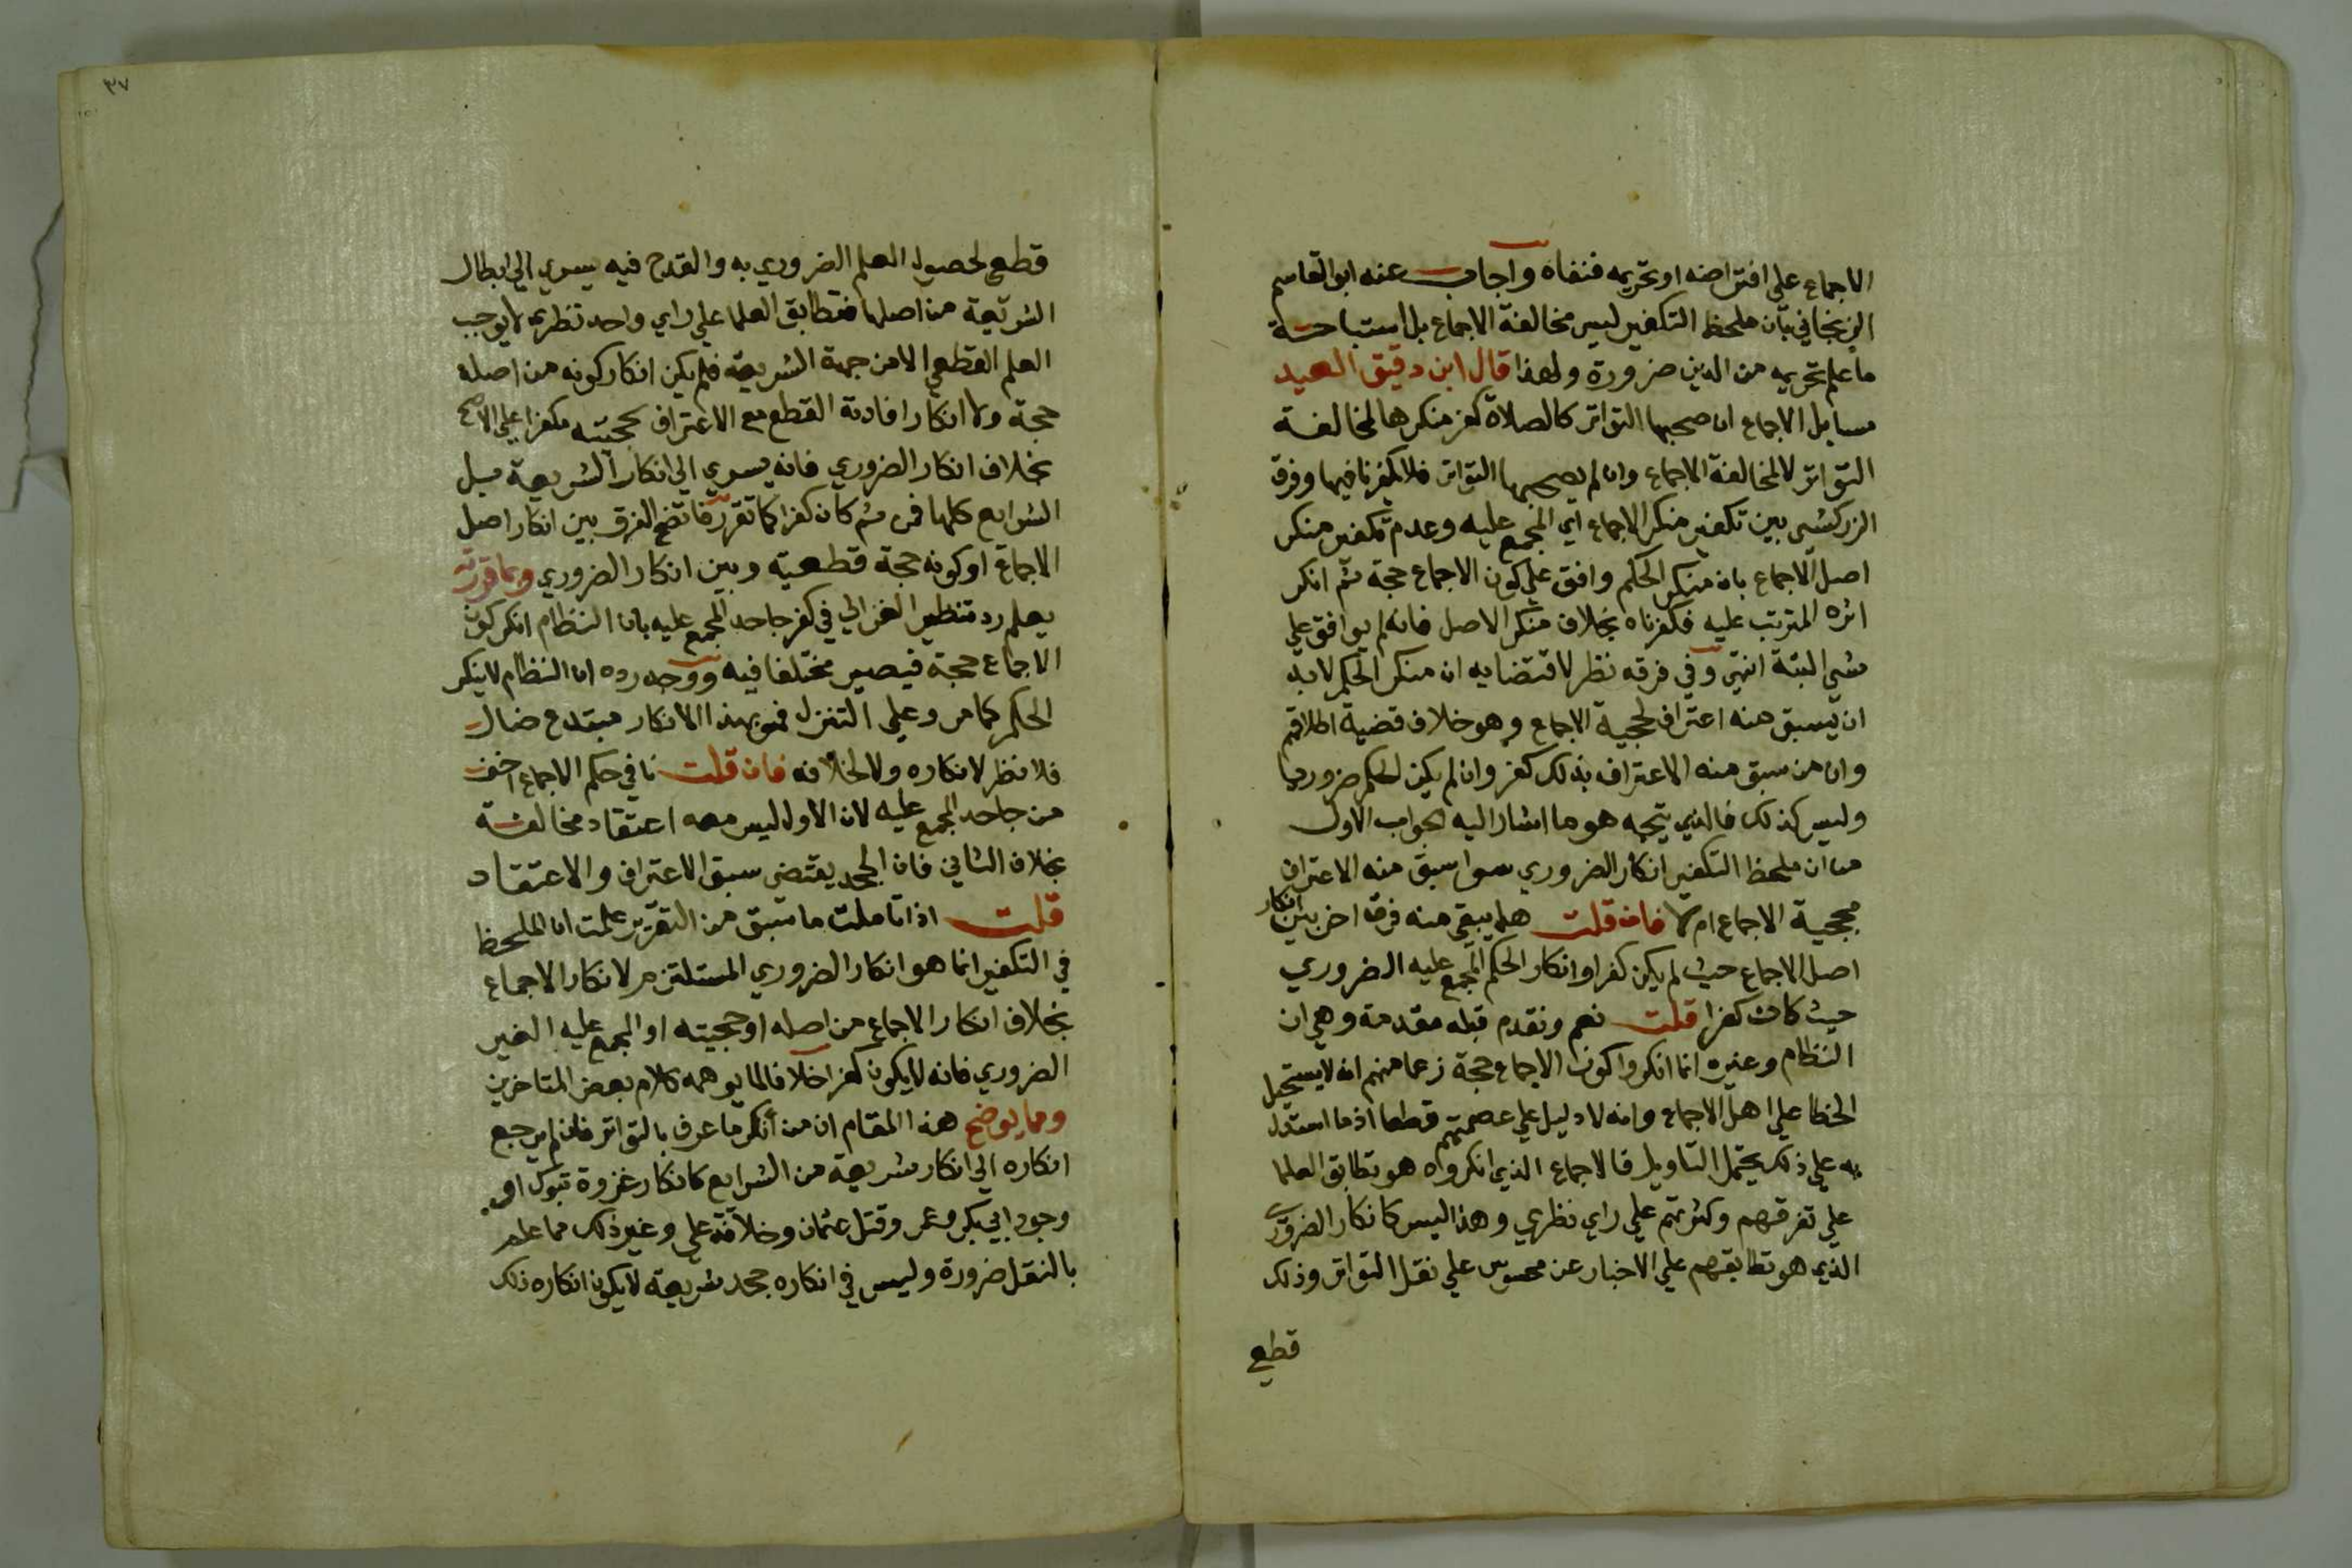 الاجماع على افتراضه او تحريمه فنفاه واجاب عنه ابو القاسم
الزنجاني بأن ملحظ التكفير ليس مخالفة الاجماع بل استباحة
ما علم تحريمه من الدين ضرورة ولهذا قال ابن دقيق العيد
مسايل الاجماع ان صحبها التواتر كالصلاة كفر منكرها لمخالفة
التواتر لا لمخالفة الاجماع وان لم يصحبها التواتر فلا يكفر نافيها وفرق
الزركشي بين تكفير منكر الاجماع اي المجمع عليه وعدم تكفير منكر
اصل الاجماع بان منكر الحكم وافق علي كون الاجماع حجة ثم انكر
اثره المترتب عليه فكفرناه بخلاف منكر الاصل فانه لم يوافق علي
شي البتة انتهى وفي فرقه نظر لاقتضايه ان منكر الحكم لا بد
ان يسبق منه اعتراف لحجية الاجماع وهو خلاف قضية اطلاقهم
وان من سبق منه الاعتراف بذلك كفر وان لم يكن الحكم ضروريا
وليس كذلك فالذي يتجه هو ما اشار اليه الجواب الاول
من ان ملحظ التكفير انكار الضروري سوا سبق منه الاعتراف
بحجية الاجماع ام لا فان قلت هل يبقى منه فرق اخر بين انكار
اصل الاجماع حيث لم يكن كفرا وانكار الحكم المجمع عليه الضروري
حيث كان كفرا قلت نعم ونقدم قبله مقدمة وهي ان
النظام وغيره انما انكروا كون الاجماع حجة زعما منهم انه لا يستحيل
الخطا علي اهل الاجماع وانه لا دليل علي عصمتهم قطعا اذ ما استدل
به علي ذلك يحتمل التاويل فالاجماع الذي انكروه هو تطابق العلما
علي تفرقهم وكثرتهم علي راي نظري وهذا ليس كانكار الضروري
الذي هو تطابقهم علي الاخبار عن محسوس علي نقل التواتر وذلك
قطعي
٣٧
قطع لحصول العلم الضروري به والقدح فيه يسري الي ابطال
الشريعة من اصلها فتطابق العلما علي راي واحد نظري لا يوجب
العلم القطعي الا من جهة الشريعة فلم يكن انكار كونه من اصله
حجة ولا انكار افادته القطع مع الاعتراف بحجيته مكفرا علي الاصح
بخلاف انكار الضروري فانه يسري الي انكار الشريعة بل
الشرايع كلها فمن ثم كان كفرا كما تقرر فاتضح الفرق بين انكار اصل
الاجماع او كونه حجة قطعية وبين انكار الضروري وبما قررته
يعلم رد تنظير الغزالي في كفر جاحد المجمع عليه بان النظام انكر كون
الاجماع حجة فيصير مختلفا فيه ووجه رده ان النظام لا ينكر
الحكم كما مر وعلي التنزل فهو بهذا الانكار مبتدع ضال
فلا نظر لانكاره ولا لخلافه فان قلت نافي حكم الاجماع اخف
من جاحد المجمع عليه لان الاول ليس معه اعتقاد مخالفة
بخلاف الثاني فان الجحد يقتضي سبق الاعتراف والاعتقاد
قلت اذا تاملت ما سبق من التقرير علمت ان الملحظ
في التكفير انما هو انكار الضروري المستلزم لانكار الاجماع
بخلاف انكار الاجماع من اصله او حجيته او المجمع عليه الغير
الضروري فانه لا يكون كفرا خلافا لما يوهمه كلام بعض المتاخرين
ومما يوضح هذا المقام ان من أنكر ما عرف بالتواتر فان لم يرجع
انكاره الي انكار شريعة من الشرايع كانكار غزوة تبوك او
وجود ابي بكر وعمر وقتل عثمان وخلافة علي وغير ذلك مما علم
بالنقل ضرورة وليس في انكاره جحد شريعة لا يكون انكاره ذلك